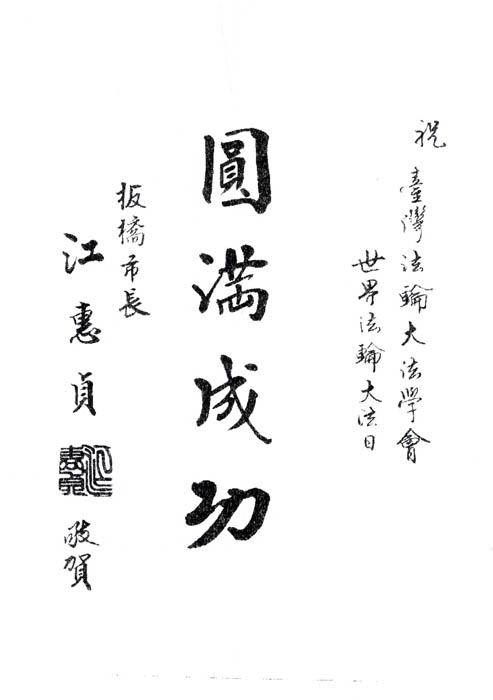 祝
臺灣法輪大法學會
世界法輪大法日
圓滿成功
板橋市長
江惠貞
敬賀